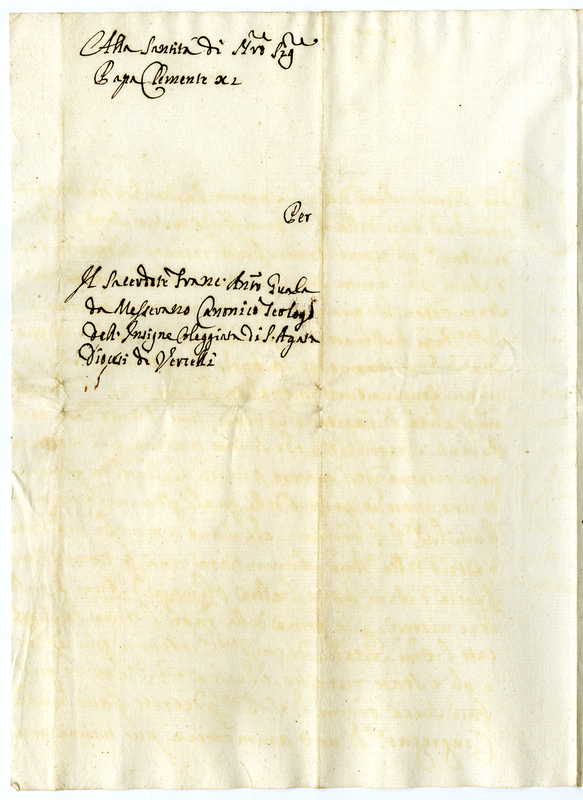 Alla Santità di Nro Sigre
Papa Clemente XI
Per
Il Sacerdote Franc: Anto Guala
da Messerano Canonico Teologo
dell: Insigne Coleggiata di S: Agata
Diocesi di Vercelli